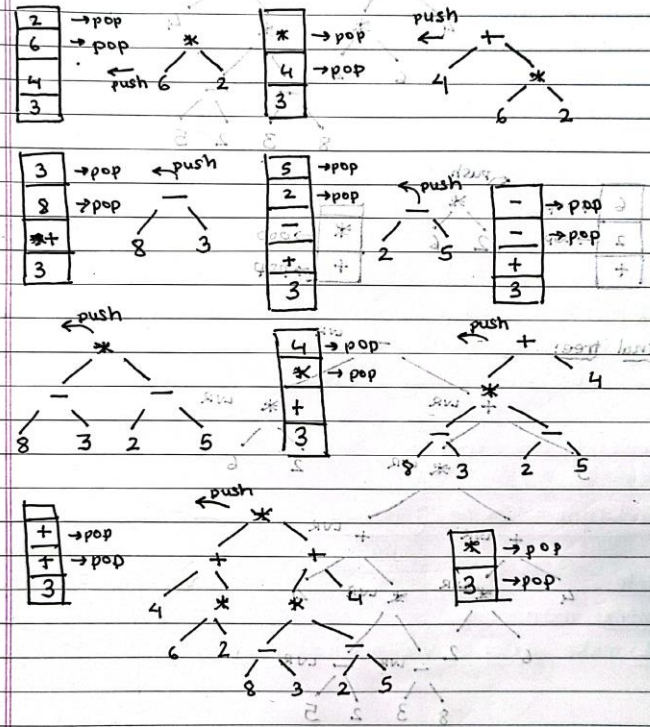 2 → pop
6 → pop
4
3
← push
*
6 2
* → pop
4 → pop
3
push
←
+
4 *
6 2
3 → pop
8 → pop
*+
3
← push
−
8 3
5 → pop
2 → pop
−
+
3
← push
−
2 5
− → pop
− → pop
+
3
← push
*
− −
8 3 2 5
4 → pop
* → pop
+
3
← push
+
* 4
− −
8 3 2 5
+ → pop
+ → pop
3
← push
*
+ +
4 * * 4
6 2 − −
8 3 2 5
* → pop
3 → pop